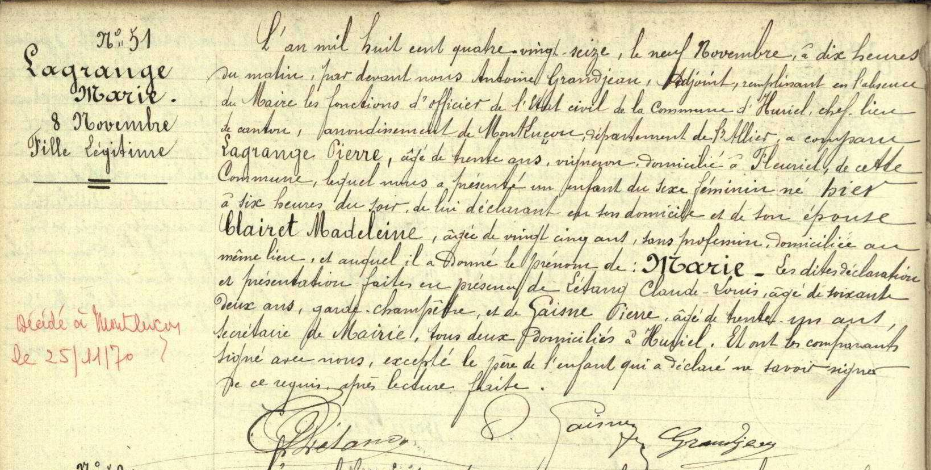 N° 51
Lagrange
Marie.
8 Novembre
Fille Légitime
Décédé à Montluçon
le 25/11/70
L'an mil huit cent quatre-vingt-seize, le neuf Novembre, à dix heures
du matin, par devant nous Antoine Grandjean, Adjoint, remplissant en l'absence
du Maire les fonctions d'officier de l'Etat civil de la Commune d'Huriel, chef-lieu
de canton, arrondissement de Montluçon, département de l'Allier, a comparu
Lagrange Pierre, âgé de trente ans, vigneron, domicilié à Fleuriel, de cette
Commune, lequel nous a présenté un enfant du sexe féminin né hier
à six heures du soir, de lui déclarant en son domicile et de son épouse
Clairet Madeleine, âgée de vingt cinq ans, sans profession, domiciliée au
même lieu, et auquel il a donné le prénom de : Marie - Les dites déclaration
et présentation faites en présence de Létang Claude-Louis, âgé de soixante
deux ans, garde-champêtre, et de Gaisne Pierre, âgé de trente-un ans,
secrétaire de Mairie, tous deux domiciliés à Huriel. Et ont les comparants
signé avec nous, excepté le père de l'enfant qui a déclaré ne savoir signer
de ce requis, après lecture faite.
Létang P. Gaisne Grandjean